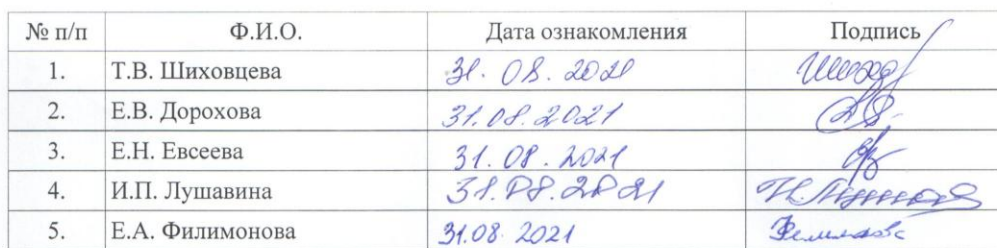 № п/п Ф.И.О. Дата ознакомления Подпись
1. Т.В. Шиховцева 31.08.2021
2. Е.В. Дорохова 31.08.2021
3. Е.Н. Евсеева 31.08.2021
4. И.П. Лушавина 31.08.2021
5. Е.А. Филимонова 31.08.2021